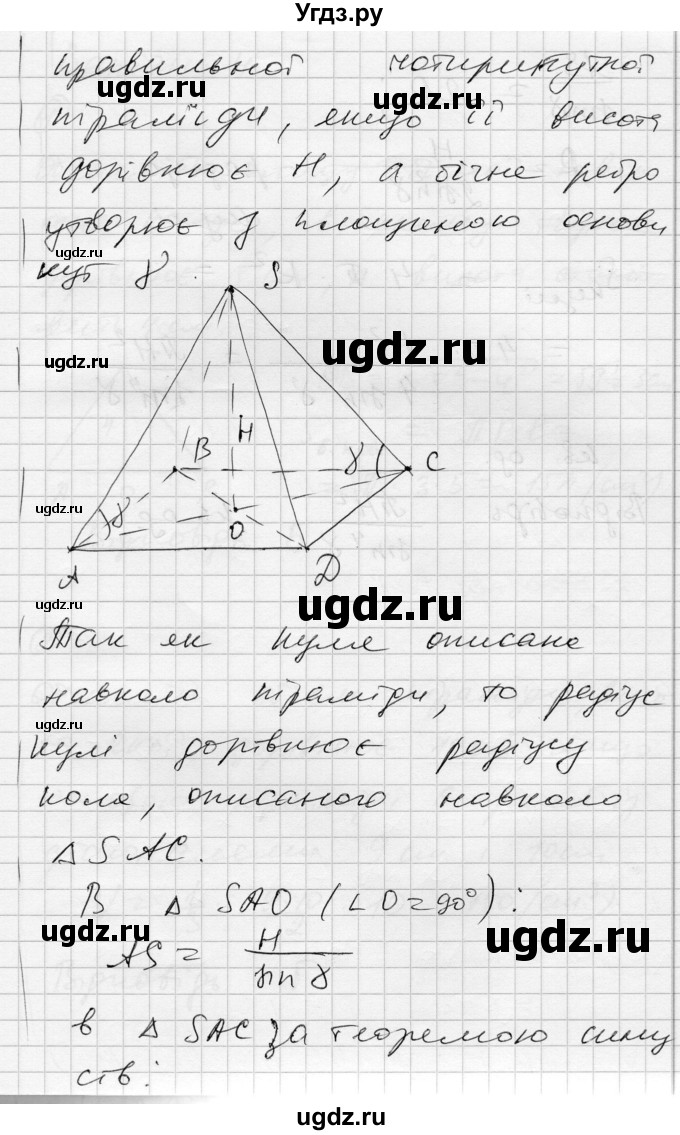 Угдз.ру
правильної чотирикутної
ugdz.ru ugdz.ru
піраміди, якщо її висота
дорівнює H, а бічне ребро
утворює з площиною основи
ugdz.ru
кут γ.
S
ugdz.ru
ugdz.ru
H
B γ C
ugdz.ru
γ
O
A D
ugdz.ru
Так як куля описана
навколо піраміди, то радіус
ugdz.ru
кулі дорівнює радіусу
кола, описаного навколо
△SAC.
В △ SAO (∠O=90°):
ugdz.ru ugdz.ru
AS = H / sin γ
в △ SAC за теоремою сину
сів:
ugdz.ru
ugdz.ru